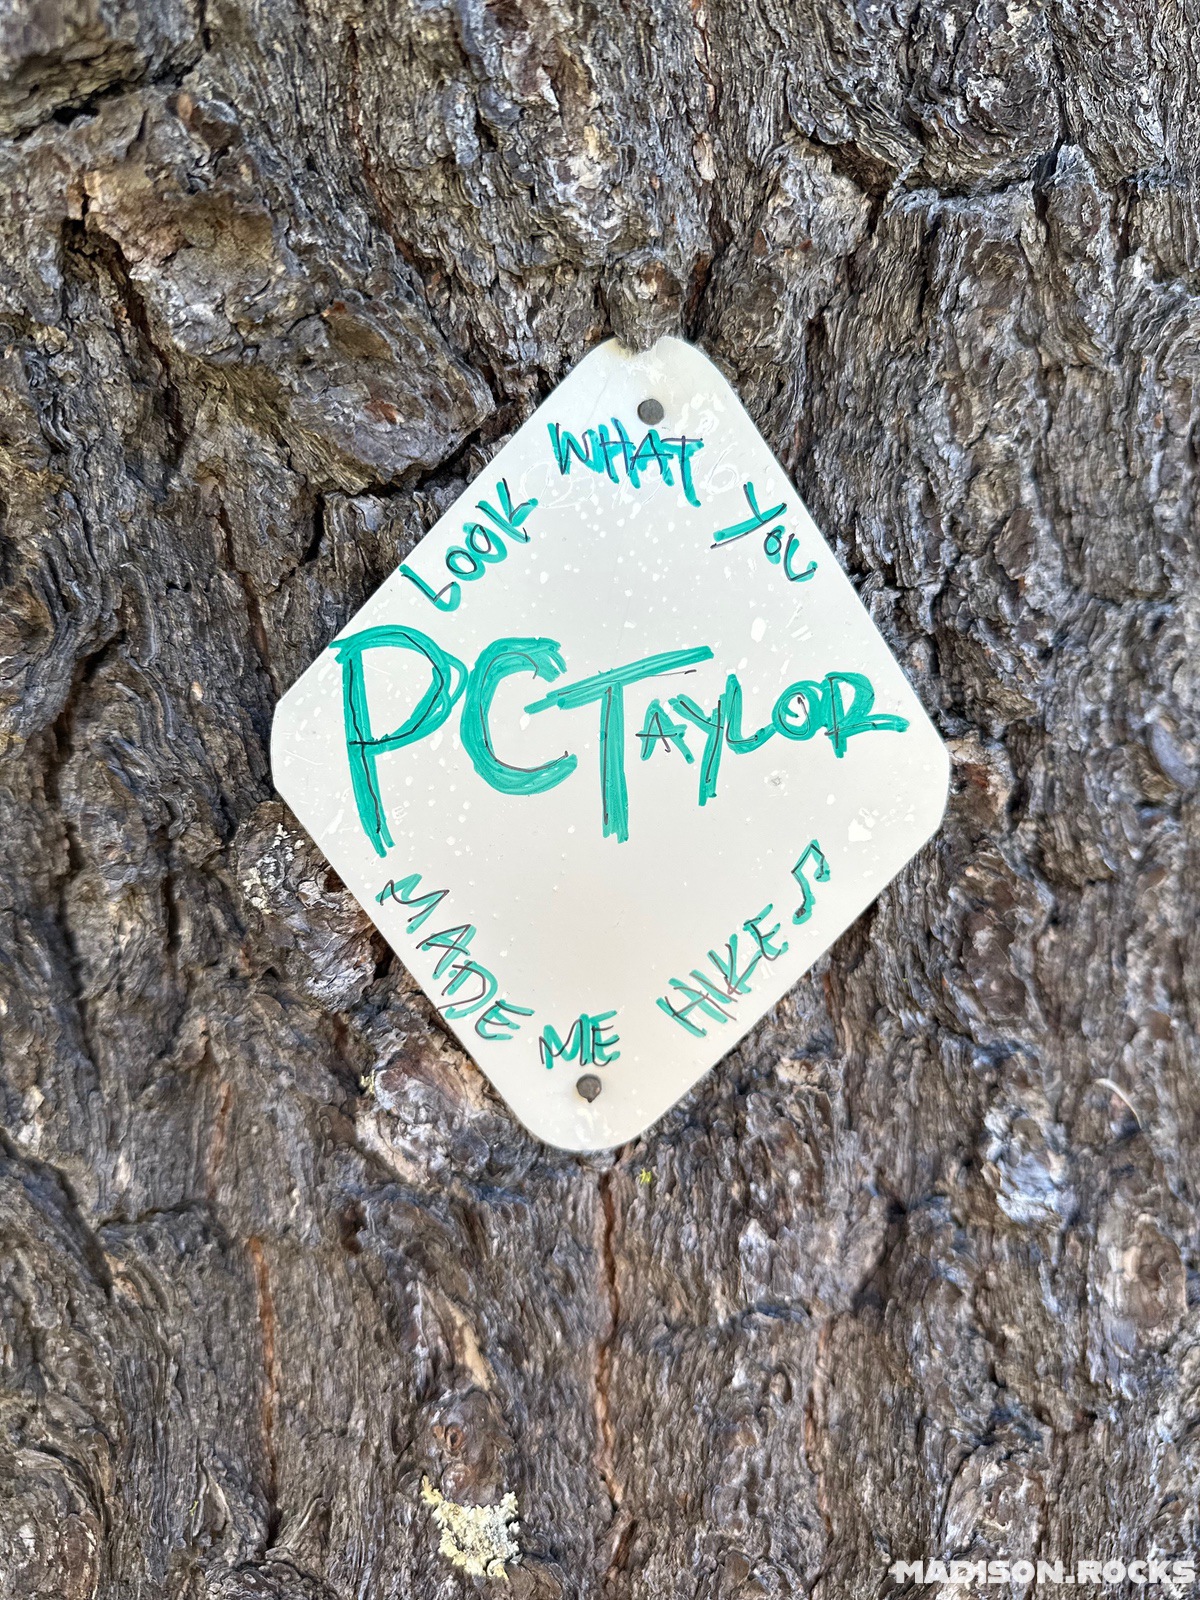 LOOK WHAT YOU
PCTAYLOR
MADE ME HIKE♪
MADISON.ROCKS